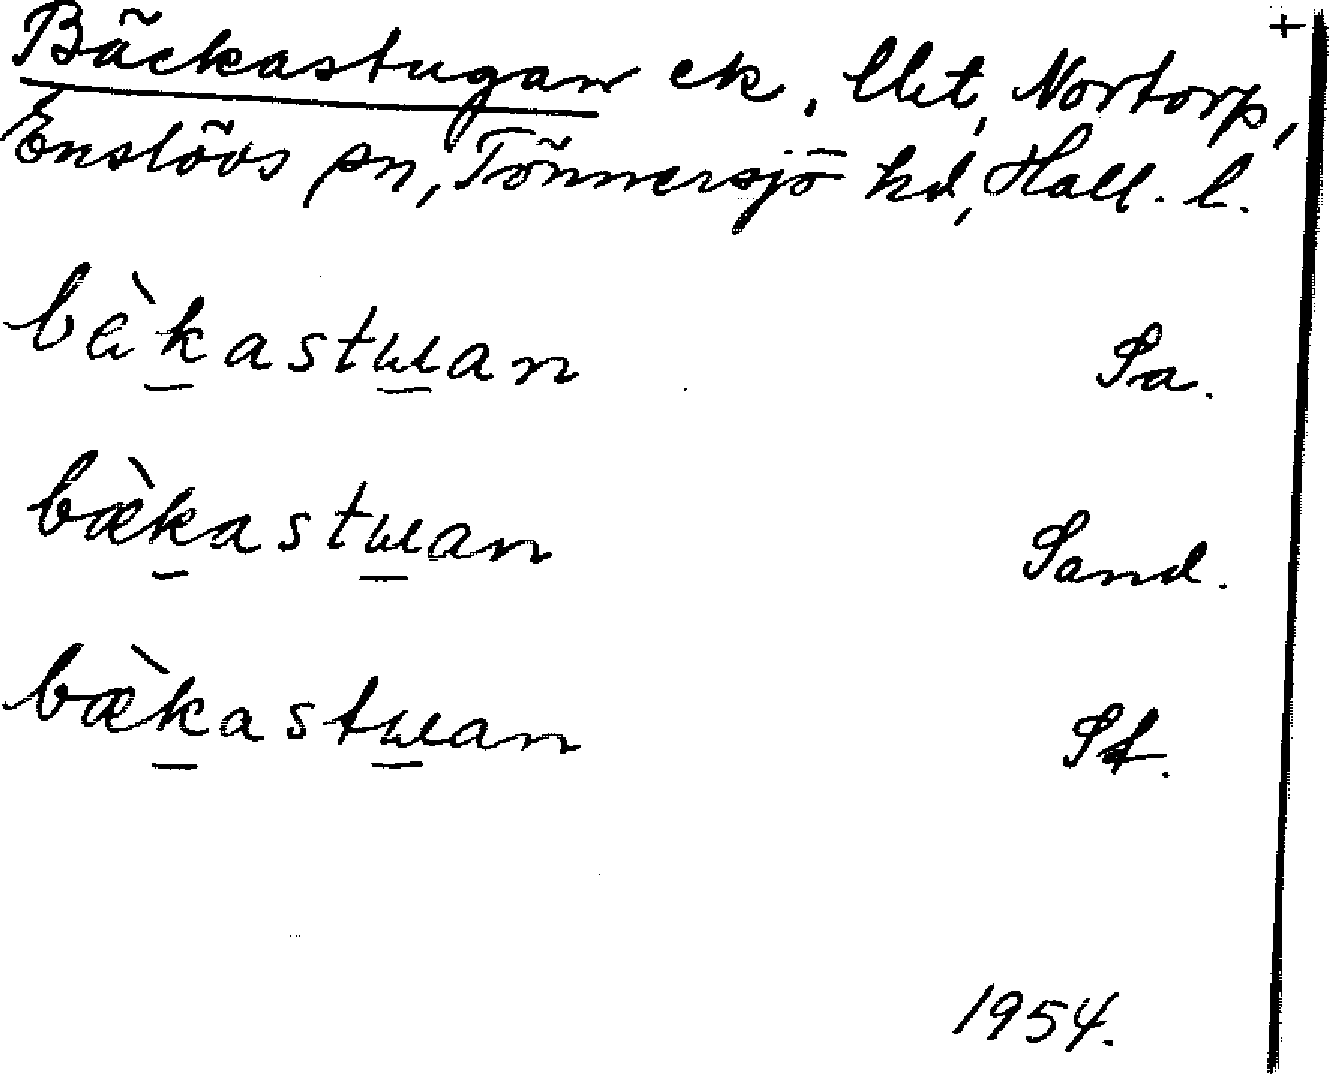 +
Bäckastugan ek, lht, Nortorp,
Enslövs sn, Tönnersjö hd, Hall. l.
bæ̀kastuan Sa.
bæ̀kastuan Sand.
bæ̀kastuan St.
1954.